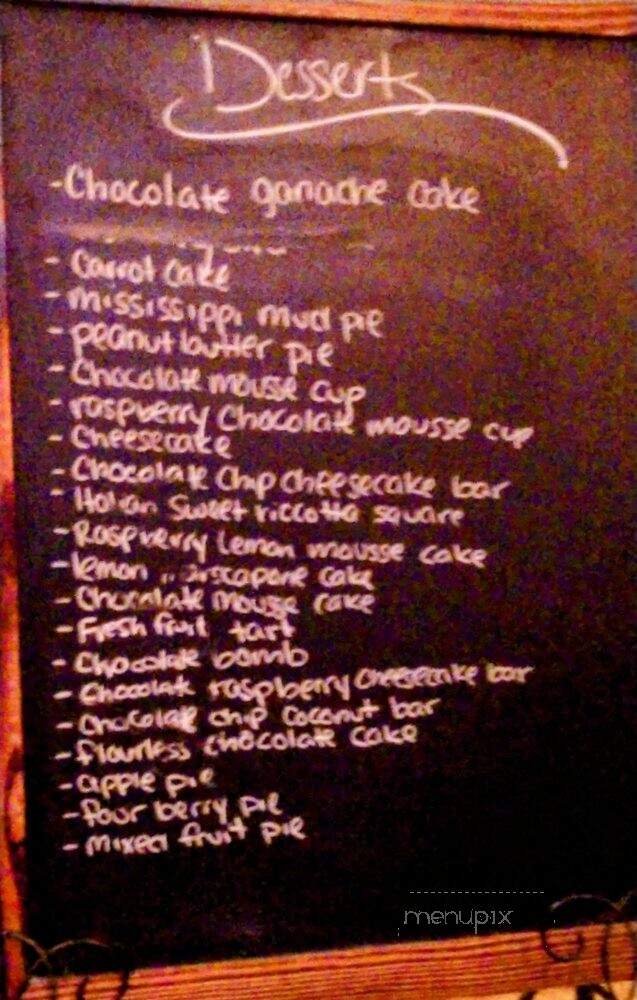 Desserts
-Chocolate ganache cake
- Carrot cake
- mississippi mud pie
- peanut butter pie
- Chocolate mouse cup
- raspverry Chocolate mousse cup
- Cheesecake
- Chocolate Chip Cheesecake bar
- Italian Sweet riccotta square
- Raspverry Lemon mousse cake
- lemon marscapone cake
- Chocolate Mouse cake
- Fresh fruit tart
- Chocolate bomb
- Chocolate raspberry cheesecake bar
- Chocolate chip Coconut bar
- flourless chocolate cake
- apple pie
- four berry pie
- mixed fruit pie
menupix